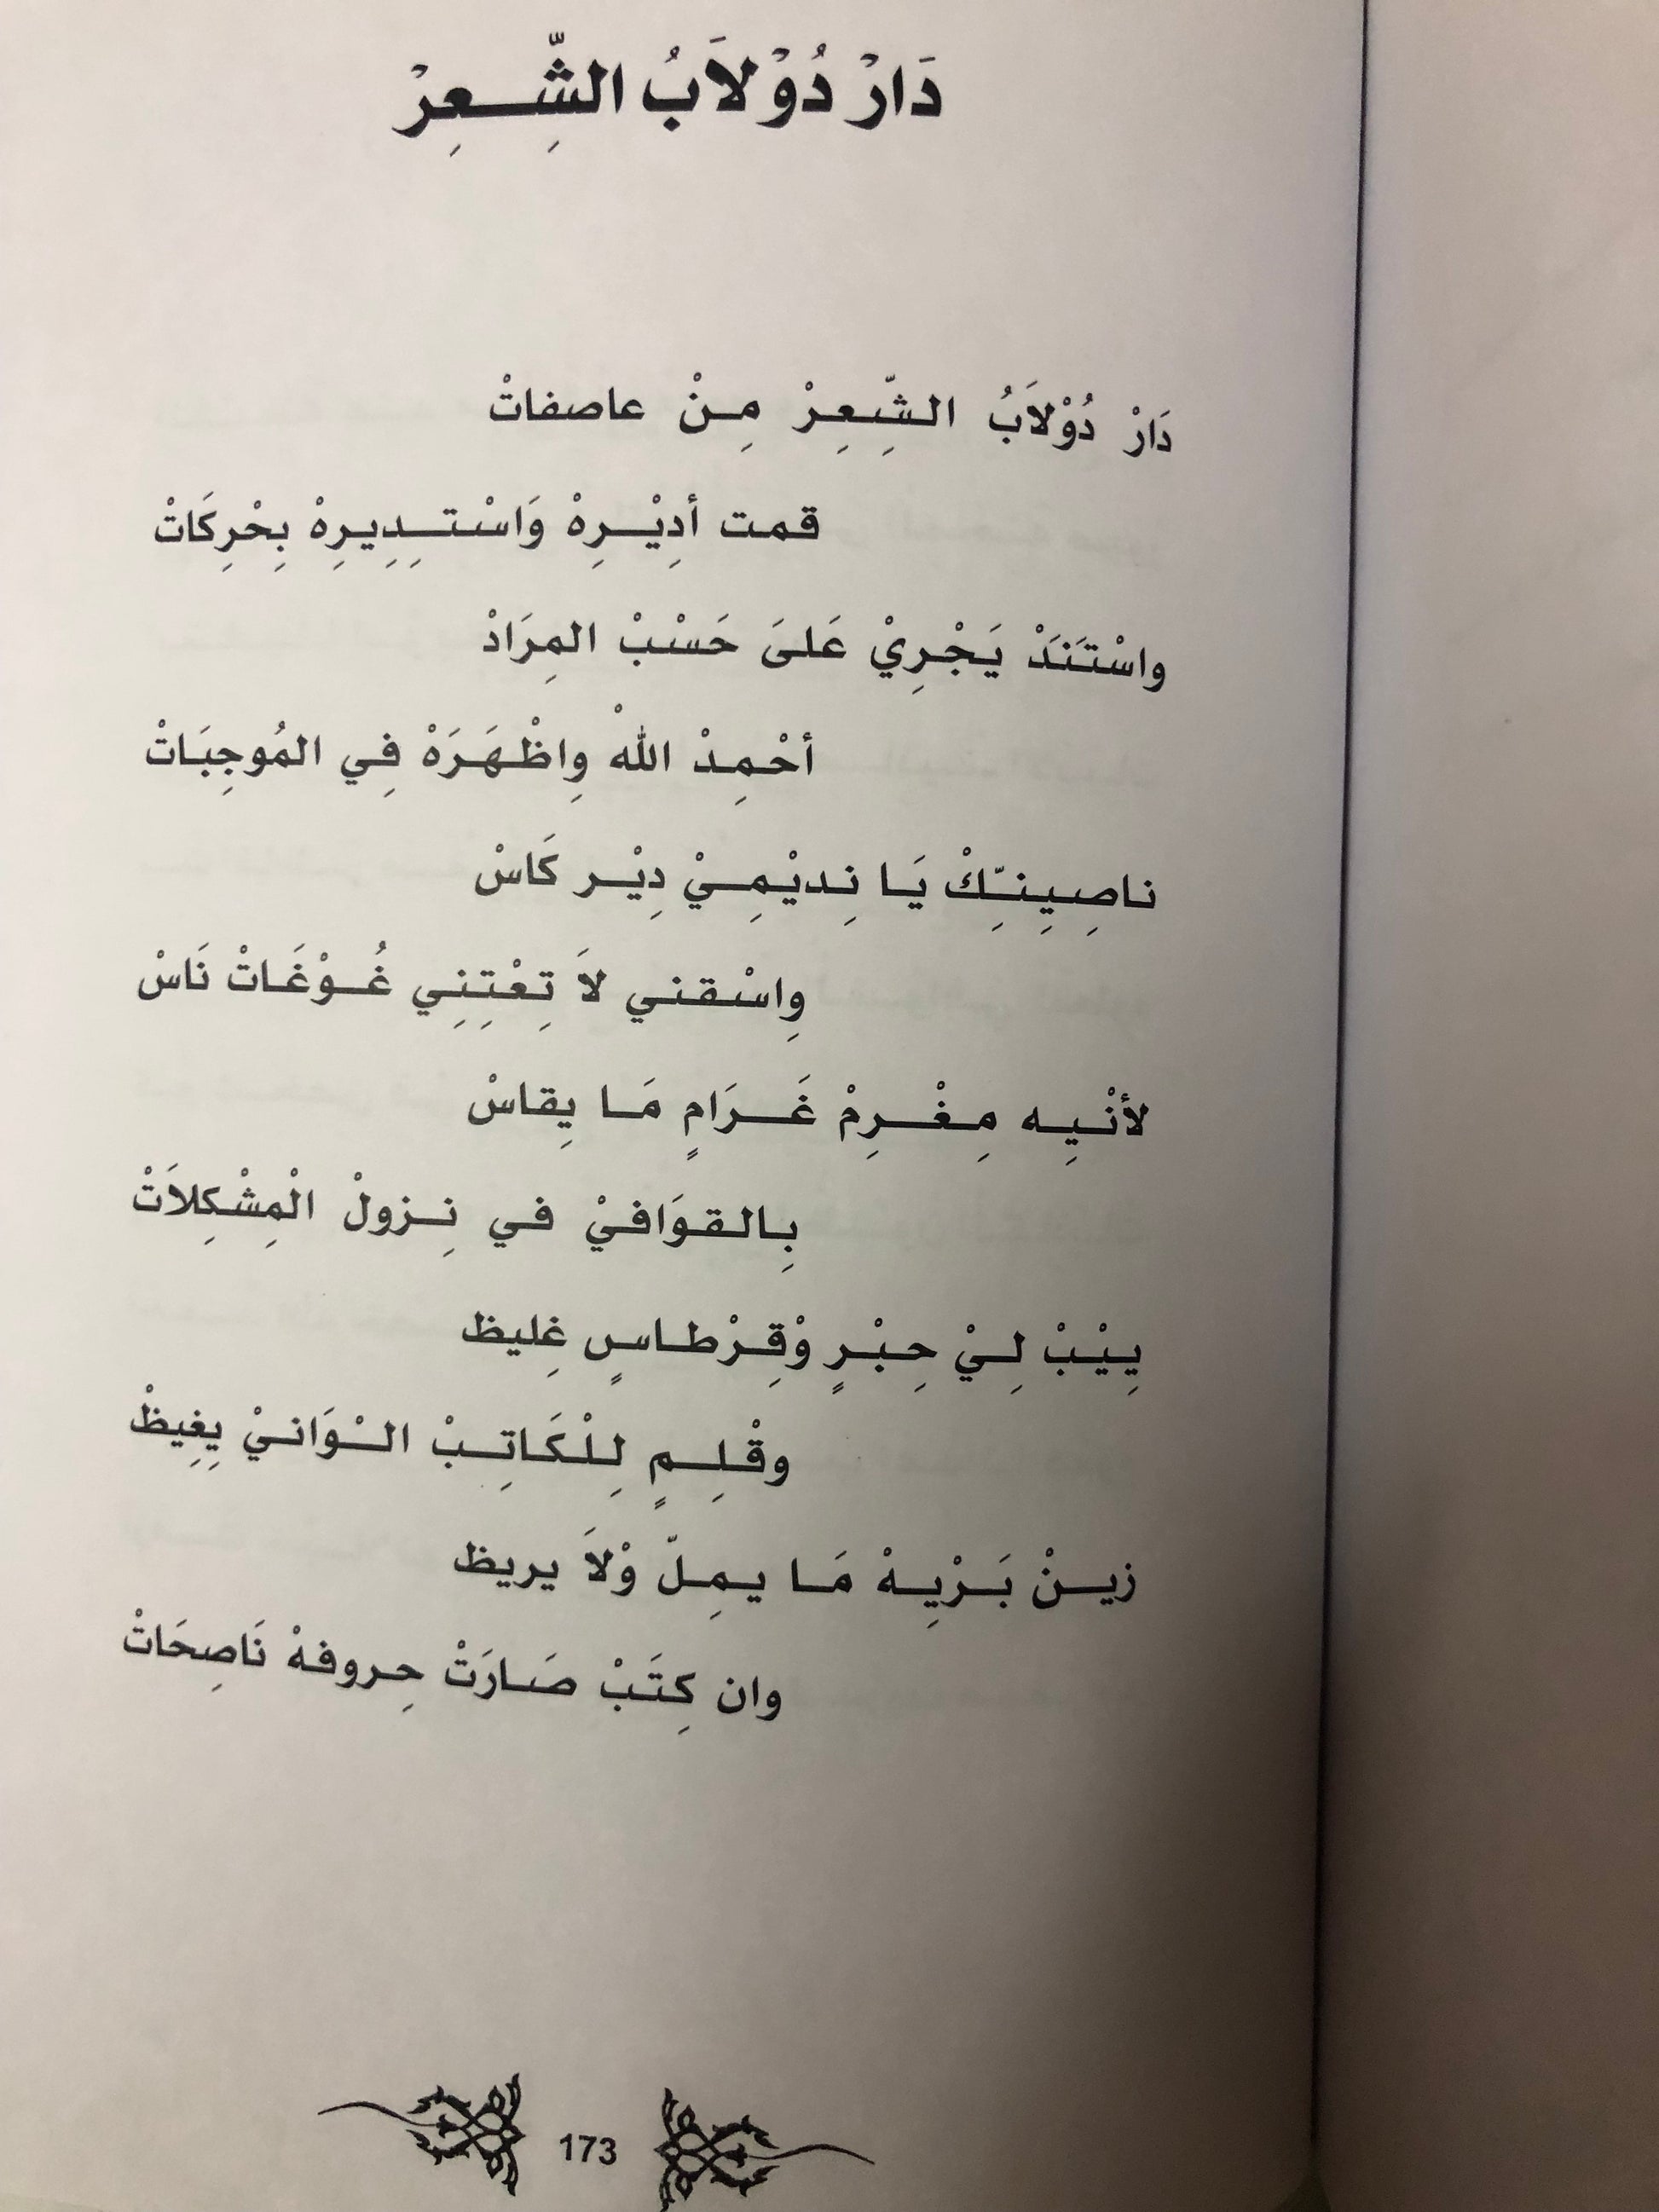 دَارْ دُوْلاَبُ الشِّعِرْ
دَارْ دُوْلاَبُ الشِّعِرْ مِنْ عاصفاتْ
قمت أدِيْرِهْ وَاسْتِدِيرِهْ بِحْرِكَاتْ
واسْتَنَدْ يَجْرِيْ عَلىَ حَسْبْ المِرَادْ
أحْمِدْ اللهْ وِاظْهَرَهْ فِي المُوجِبَاتْ
ناصِيِنِّكْ يَا نِديْمِيْ دِيْر كَاسْ
وِاسْقني لاَ تِعْتِنِي غُوْغَاتْ نَاسْ
لأنْيِه مِغْرِمْ غَرَامٍ مَا يِقاسْ
بِالقوَافيْ في نِزولْ الْمِشْكِلاَتْ
يِيْبْ لِيْ حِبْرٍ وْقِرْطاسٍ غِليظ
وقْلِمٍ لِلْكَاتِبْ الْوَانيْ يِغِيظْ
زينْ بَرْيِهْ مَا يمِلّ وْلاَ يريظ
وان كِتَبْ صَارَتْ حِروفهْ نَاصِحَاتْ
173